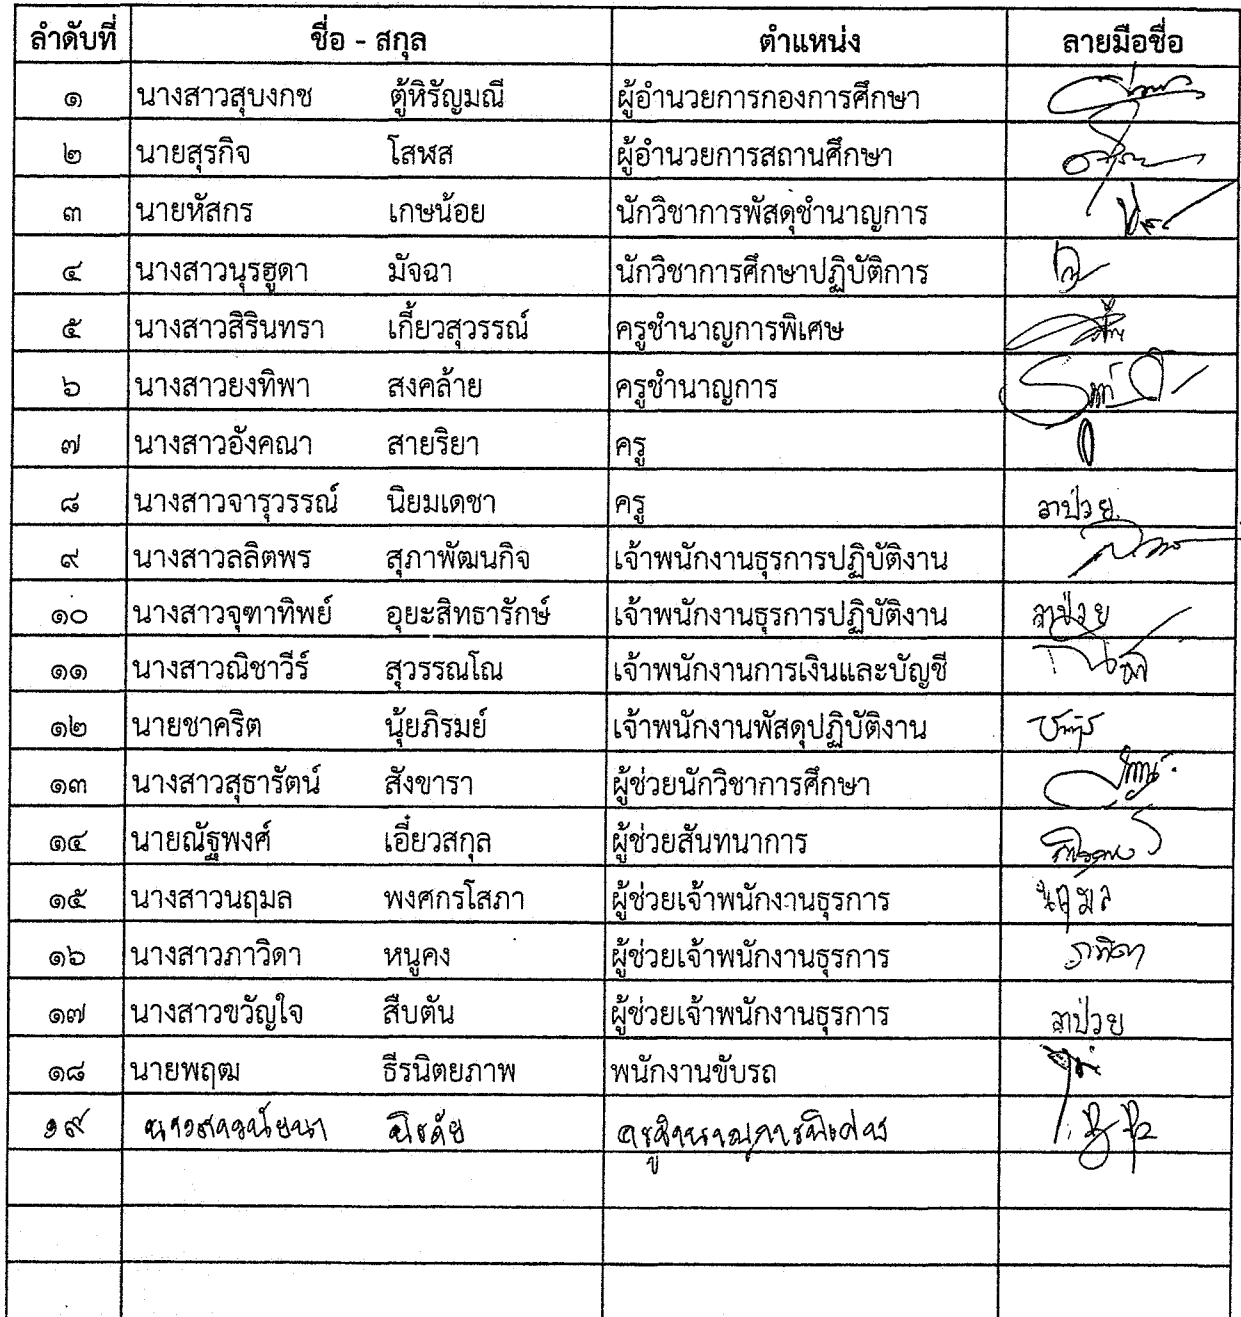 ลำดับที่ ชื่อ - สกุล ตำแหน่ง ลายมือชื่อ
๑ นางสาวสุบงกช ตู้หิรัญมณี ผู้อำนวยการกองการศึกษา
๒ นายสุรกิจ โสฬส ผู้อำนวยการสถานศึกษา
๓ นายหัสกร เกษน้อย นักวิชาการพัสดุชำนาญการ
๔ นางสาวนุรฮูดา มัจฉา นักวิชาการศึกษาปฏิบัติการ
๕ นางสาวสิรินทรา เกี้ยวสุวรรณ์ ครูชำนาญการพิเศษ
๖ นางสาวยงทิพา สงคล้าย ครูชำนาญการ
๗ นางสาวอังคณา สายริยา ครู
๘ นางสาวจารุวรรณ์ นิยมเดชา ครู ลาป่วย
๙ นางสาวลลิตพร สุภาพัฒนกิจ เจ้าพนักงานธุรการปฏิบัติงาน
๑๐ นางสาวจุฑาทิพย์ อุยะสิทธารักษ์ เจ้าพนักงานธุรการปฏิบัติงาน ลาป่วย
๑๑ นางสาวณิชาวีร์ สุวรรณโณ เจ้าพนักงานการเงินและบัญชี
๑๒ นายชาคริต นุ้ยภิรมย์ เจ้าพนักงานพัสดุปฏิบัติงาน
๑๓ นางสาวสุธารัตน์ สังขารา ผู้ช่วยนักวิชาการศึกษา
๑๔ นายณัฐพงศ์ เอี่ยวสกุล ผู้ช่วยสันทนาการ
๑๕ นางสาวนฤมล พงศกรโสภา ผู้ช่วยเจ้าพนักงานธุรการ นฤมล
๑๖ นางสาวภาวิดา หนูคง ผู้ช่วยเจ้าพนักงานธุรการ
๑๗ นางสาวขวัญใจ สืบตัน ผู้ช่วยเจ้าพนักงานธุรการ ลาป่วย
๑๘ นายพฤฒ ธีรนิตยภาพ พนักงานขับรถ
๑๙ นางสาวนัยนา ครูชำนาญการพิเศษ